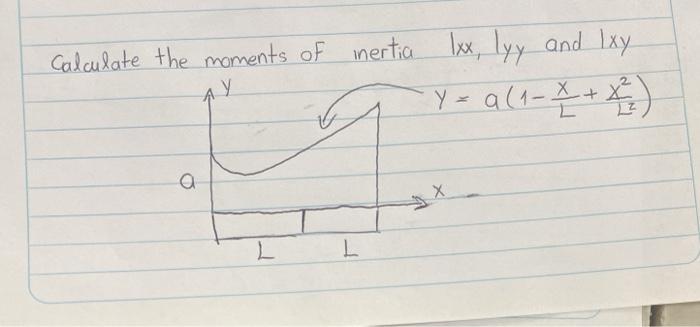 Calculate the moments of inertia Ixx, Iyy and Ixy
y
y = a(1 - x/L + x²/L²)
a
x
L L